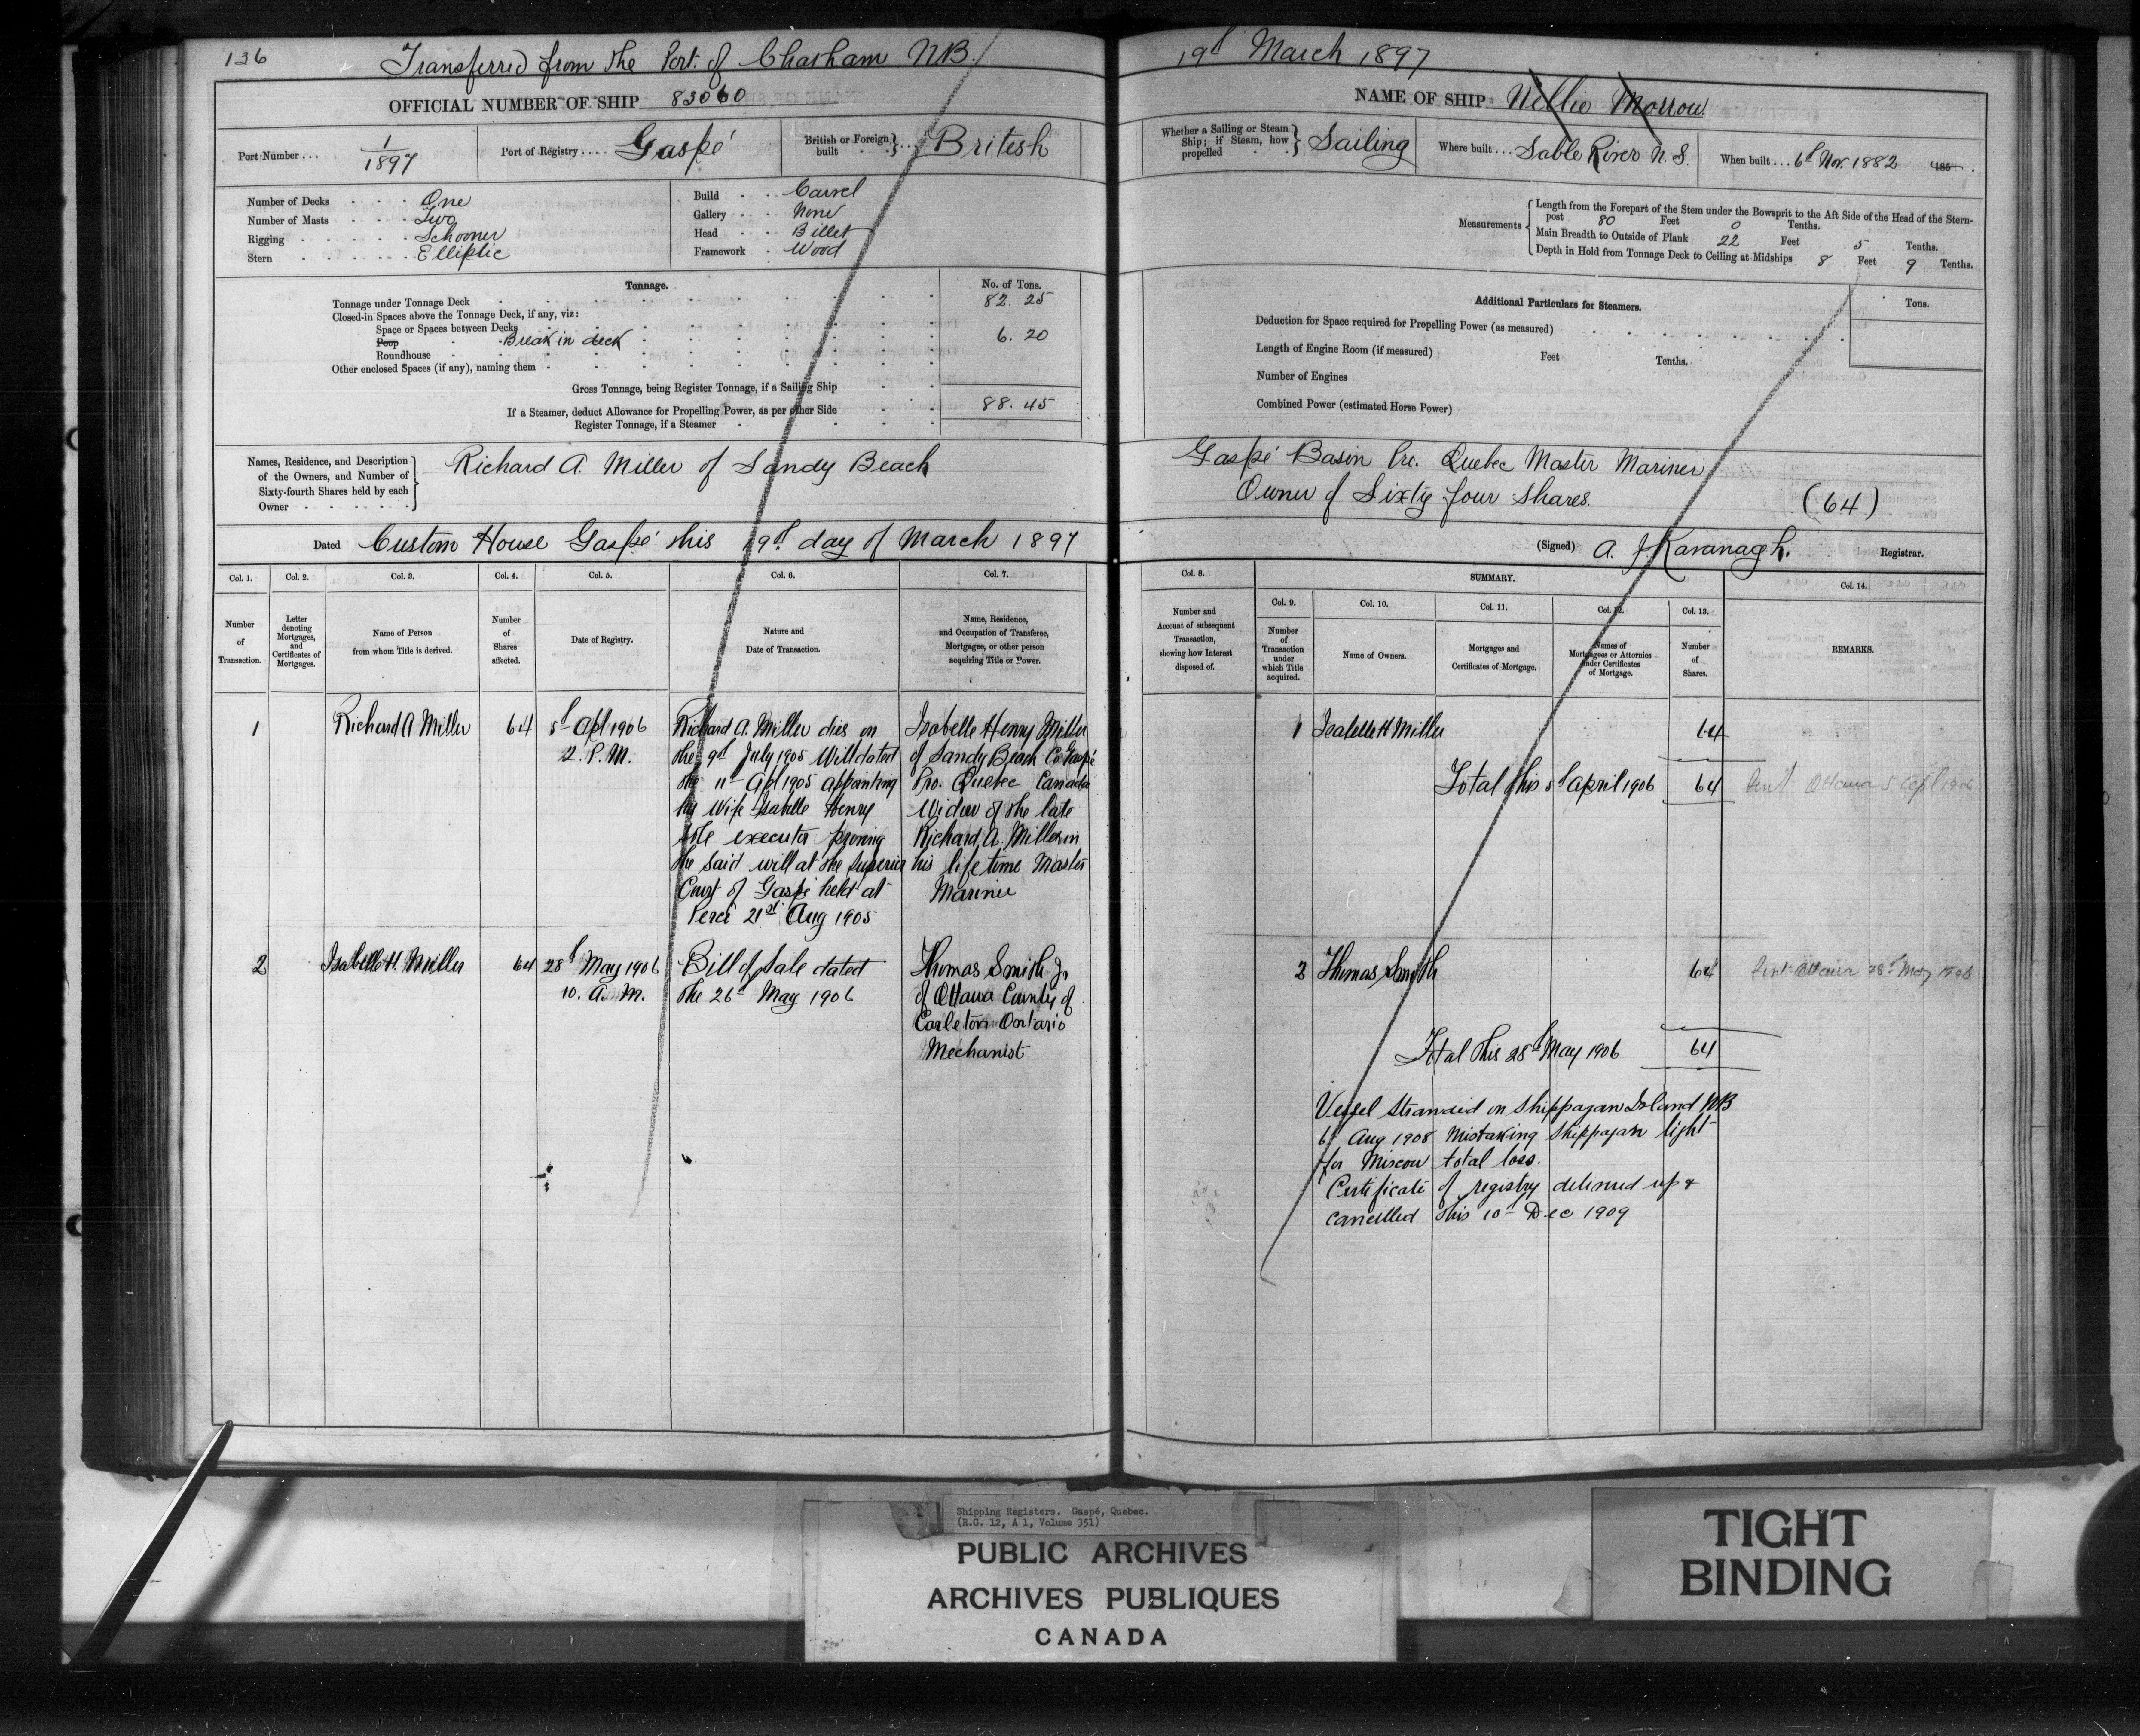 136
Transferred from the Port of Chatham NB.
19th March 1897
OFFICIAL NUMBER OF SHIP 83060
NAME OF SHIP Nellie Morrow
Port Number ... 1/1897
Port of Registry .... Gaspé
British or Foreign built } ... British
Whether a Sailing or Steam Ship; if Steam, how propelled } Sailing
Where built ... Sable River N.S.
When built ... 6th Nov. 1882 185 .
Number of Decks One
Number of Masts Two
Rigging Schooner
Stern Elliptic
Build Carvel
Gallery None
Head Billet
Framework Wood
Measurements
Length from the Forepart of the Stem under the Bowsprit to the Aft Side of the Head of the Stern-
post 80 Feet 0 Tenths.
Main Breadth to Outside of Plank 22 Feet 5 Tenths.
Depth in Hold from Tonnage Deck to Ceiling at Midships 8 Feet 9 Tenths.
Tonnage.
No. of Tons.
Tonnage under Tonnage Deck 82. 25
Closed-in Spaces above the Tonnage Deck, if any, viz:
Space or Spaces between Decks
Poop Break in deck 6. 20
Roundhouse
Other enclosed Spaces (if any), naming them
Gross Tonnage, being Register Tonnage, if a Sailing Ship
88. 45
If a Steamer, deduct Allowance for Propelling Power, as per other Side
Register Tonnage, if a Steamer
Additional Particulars for Steamers.
Tons.
Deduction for Space required for Propelling Power (as measured)
Length of Engine Room (if measured) Feet Tenths.
Number of Engines
Combined Power (estimated Horse Power)
Names, Residence, and Description
of the Owners, and Number of
Sixty-fourth Shares held by each
Owner
Richard A. Miller of Sandy Beach
Gaspé Basin Pre. Quebec Master Mariner
Owner of Sixty four Shares. (64)
Dated Custom House Gaspé this 19th day of March 1897
(Signed) A. J Kavanagh. Registrar.
Col. 1. Col. 2. Col. 3. Col. 4. Col. 5. Col. 6. Col. 7.
Number of Transaction.
Letter denoting Mortgages, and Certificates of Mortgages.
Name of Person from whom Title is derived.
Number of Shares affected.
Date of Registry.
Nature and Date of Transaction.
Name, Residence, and Occupation of Transferee, Mortgages, or other person acquiring Title or Power.
Col. 8. SUMMARY. Col. 14.
Col. 9. Col. 10. Col. 11. Col. 12. Col. 13.
Number and Account of subsequent Transaction, showing how Interest disposed of.
Number of Transaction under which Title acquired.
Name of Owners.
Mortgages and Certificates of Mortgage.
Names of Mortgagees or Attornies under Certificates of Mortgage.
Number of Shares.
REMARKS.
1
Richard A Miller
64
5th Apl 1906
2. P. M.
Richard A. Miller dies on
the 9th July 1905 Will dated
the 11th Apl 1905 appointing
his Wife Isabelle Henry
sole executor proving
the said will at the Superior
Court of Gaspé held at
Percé 21st Aug 1905
Isabelle Henry Miller
of Sandy Beach Co Gaspé
Pro. Quebec Canada
Widow of the late
Richard A. Miller in
his life time Master
Mariner
2
Isabelle H. Miller
64
28th May 1906
10. A. M.
Bill of Sale dated
the 26th May 1906
Thomas Smith Jr
of Ottawa County of
Carleton Ontario
Mechanist
1 Isabelle H Miller 64
Total this 5th April 1906 64 Sent Ottawa 5 Apl 1906
2 Thomas Smith 64 Sent Ottawa 28th May 1906
Total this 28th May 1906 64
Vessel Stranded on Shippagan Island NB
6th Aug 1908 Mistaking Shippagan light
for Miscou total loss.
Certificate of registry delivered up &
cancelled this 10th Dec 1909
Shipping Registers. Gaspé, Quebec.
(R.G. 12, A 1, Volume 351)
PUBLIC ARCHIVES
ARCHIVES PUBLIQUES
CANADA
TIGHT
BINDING